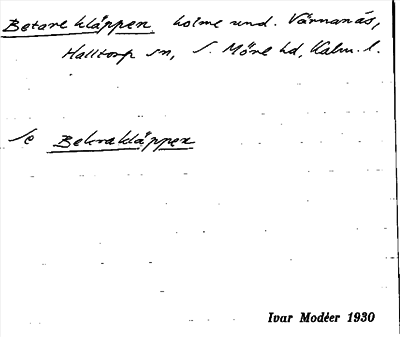 Betare kläppen holme und. Värnanäs,
Halltorp sn, S. Möre hd, Kalm. l.
Se Bekrakläppen
Ivar Modéer 1930